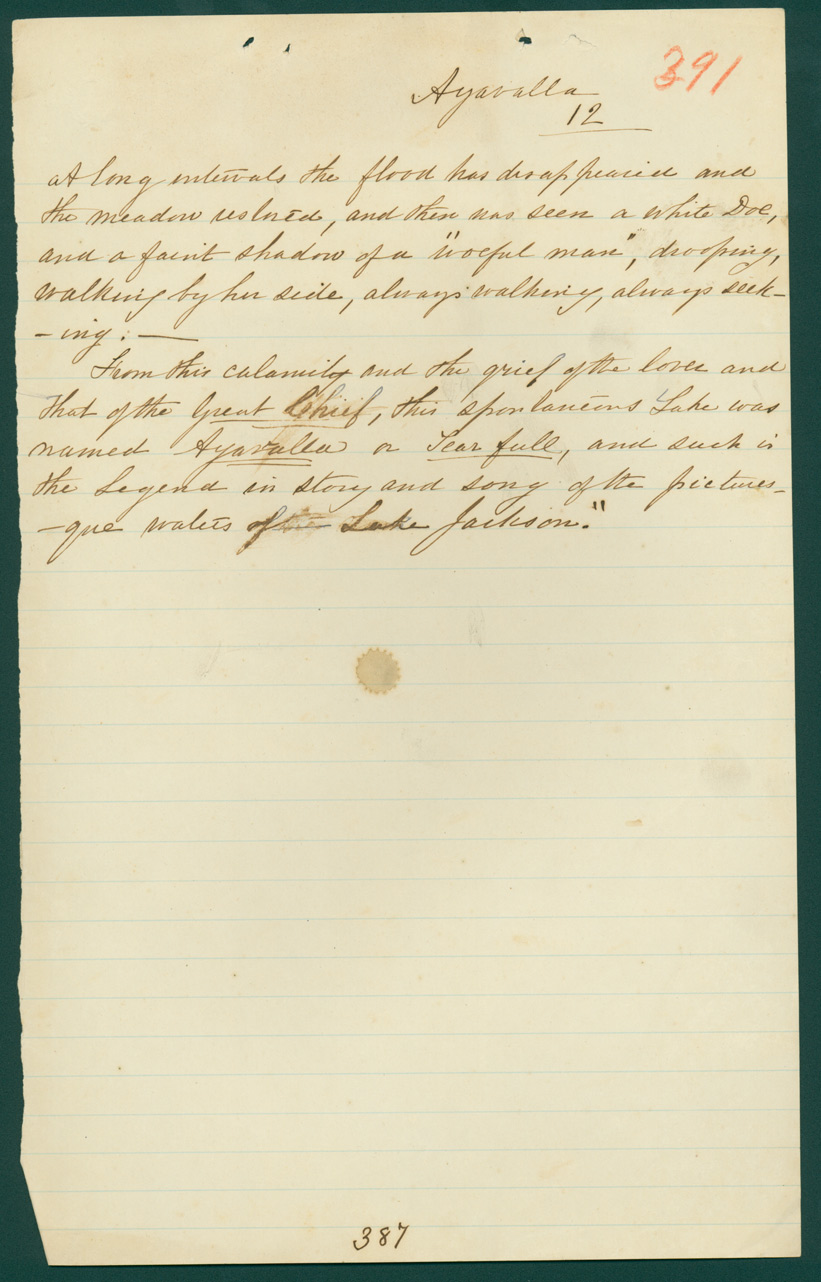 391
Ayavalla
12
at long intervals the flood has disappeared and
the meadow restored, and then was seen a white Doe,
and a faint shadow of a "woeful man", drooping,
walking by her side, always walking, always seek-
-ing. —
From this calamity and the grief of the lover and
that of the Great Chief, this spontaneous Lake was
named Ayavalla or Tear full, and such is
the Legend in story and song of the pictures-
-que waters of the Lake Jackson."
387